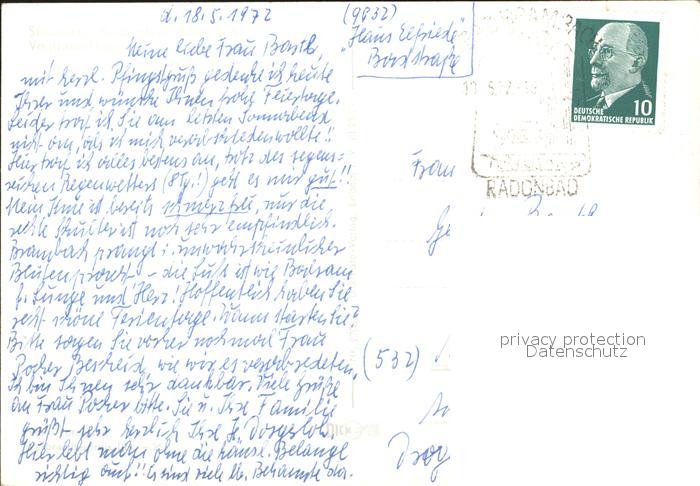 d. 18.5.1972
(9932)
"Haus Elfriede"
Badstraße
Meine liebe Frau Bartl,
mit herzl. Pfingstgruß gedenke ich heute
Ihrer und wünsche Ihnen frohe Feiertage.
Leider traf ich Sie am letzten Sonnabend
nicht an, als ich mich verabschieden wollte!!
Hier traf ich alles bestens an, trotz des segens-
reichen Regenwetters (8 Tg.!) geht es mir gut!!
Mein Knie ist bereits schmerzfrei, nur die
rechte Schulter ist noch sehr empfindlich.
Brambach prangt i. unwahrscheinlicher
Blütenpracht - die Luft ist wie Balsam
f. Lunge und Herz! Hoffentlich haben Sie
recht schöne Ferientage. Wann starten Sie?
Bitte sagen Sie vorher nochmal Frau
Pocher Bescheid, wie wir es verabredeten.
Ich bin Ihnen sehr dankbar. Viele Grüße
an Frau Pocher bitte. Sie u. Ihre Familie
grüßt sehr herzlich Ihre
Hier lebt man ohne die Pause. Belange
richtig auf!! Es sind viele lb. Bekannte da.
DEUTSCHE
DEMOKRATISCHE REPUBLIK
10
RADONBAD
Frau
(532)
privacy protection
Datenschutz